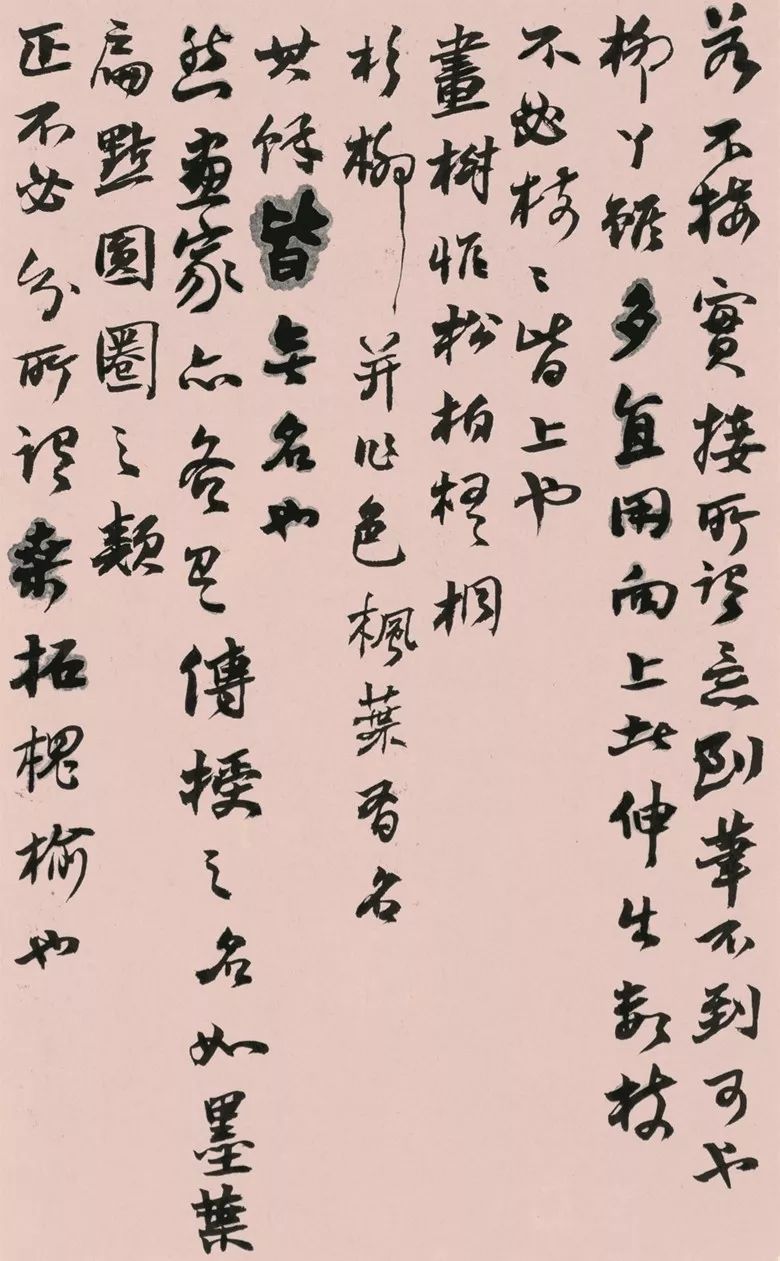 若不接實接所謂意到筆不到可也
柳丫雖多宜用向上者伸出數枝
不必枝〻皆上也
畫樹惟松柏梧桐
杉柳并作色楓葉有名
其餘皆無名也
然畫家亦各有傳授之名如墨葉
扁點圓圈之類
正不必分所謂桑柘槐榆也